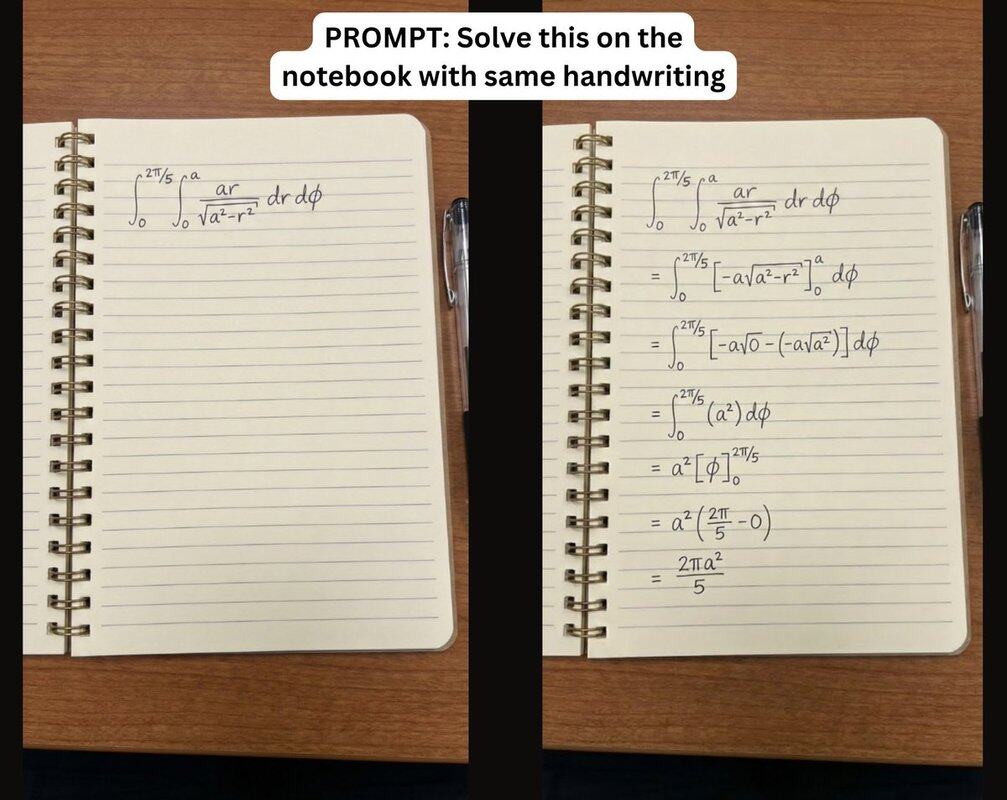 PROMPT: Solve this on the
notebook with same handwriting
∫₀^{2π/5} ∫₀^a ar/√(a²-r²) dr dϕ
∫₀^{2π/5} ∫₀^a ar/√(a²-r²) dr dϕ
= ∫₀^{2π/5} [-a√(a²-r²)]₀^a dϕ
= ∫₀^{2π/5} [-a√0-(-a√a²)] dϕ
= ∫₀^{2π/5} (a²) dϕ
= a² [ϕ]₀^{2π/5}
= a² (2π/5 - 0)
= 2πa²/5